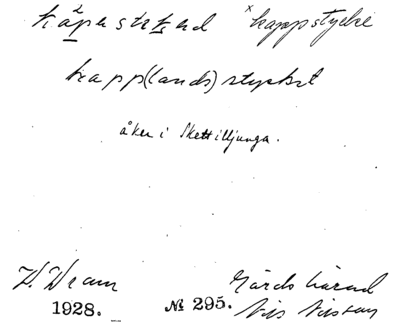 kápesteked ˣkappstycke
kapp(lands)stycket
åker i Skettilljunga.
V. Vram Gärds härad
1928. № 295. Nils Nilsson